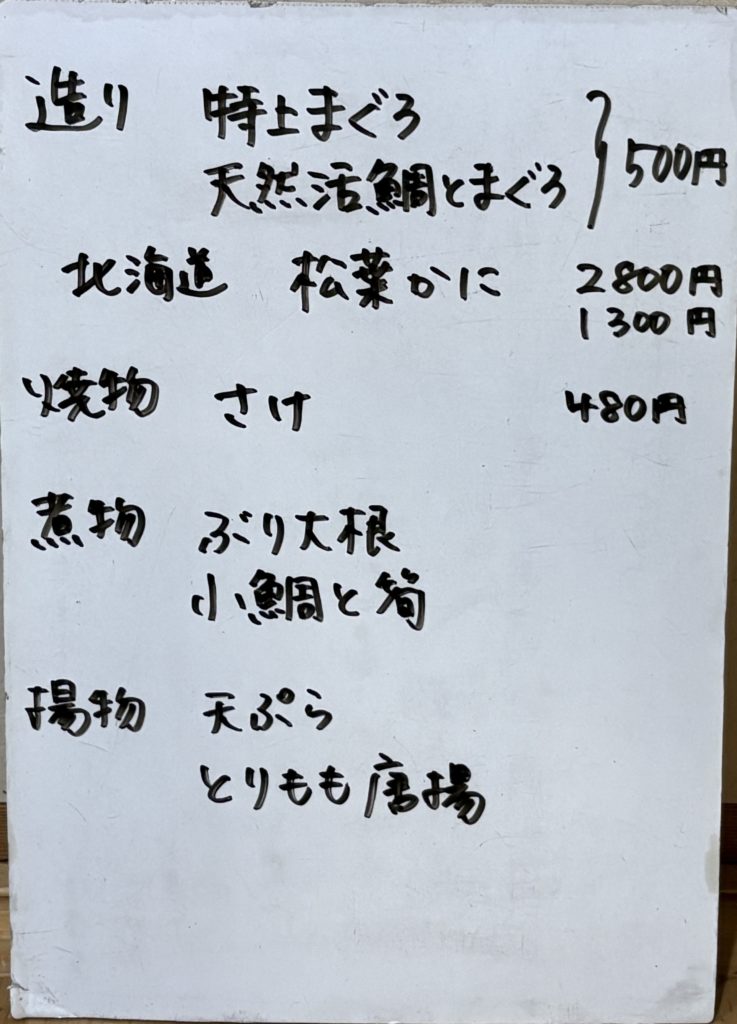 造り 特上まぐろ
天然活鯛とまぐろ } 500円
北海道 松葉かに 2800円
1300円
焼物 さけ 480円
煮物 ぶり大根
小鯛と筍
揚物 天ぷら
とりもも唐揚